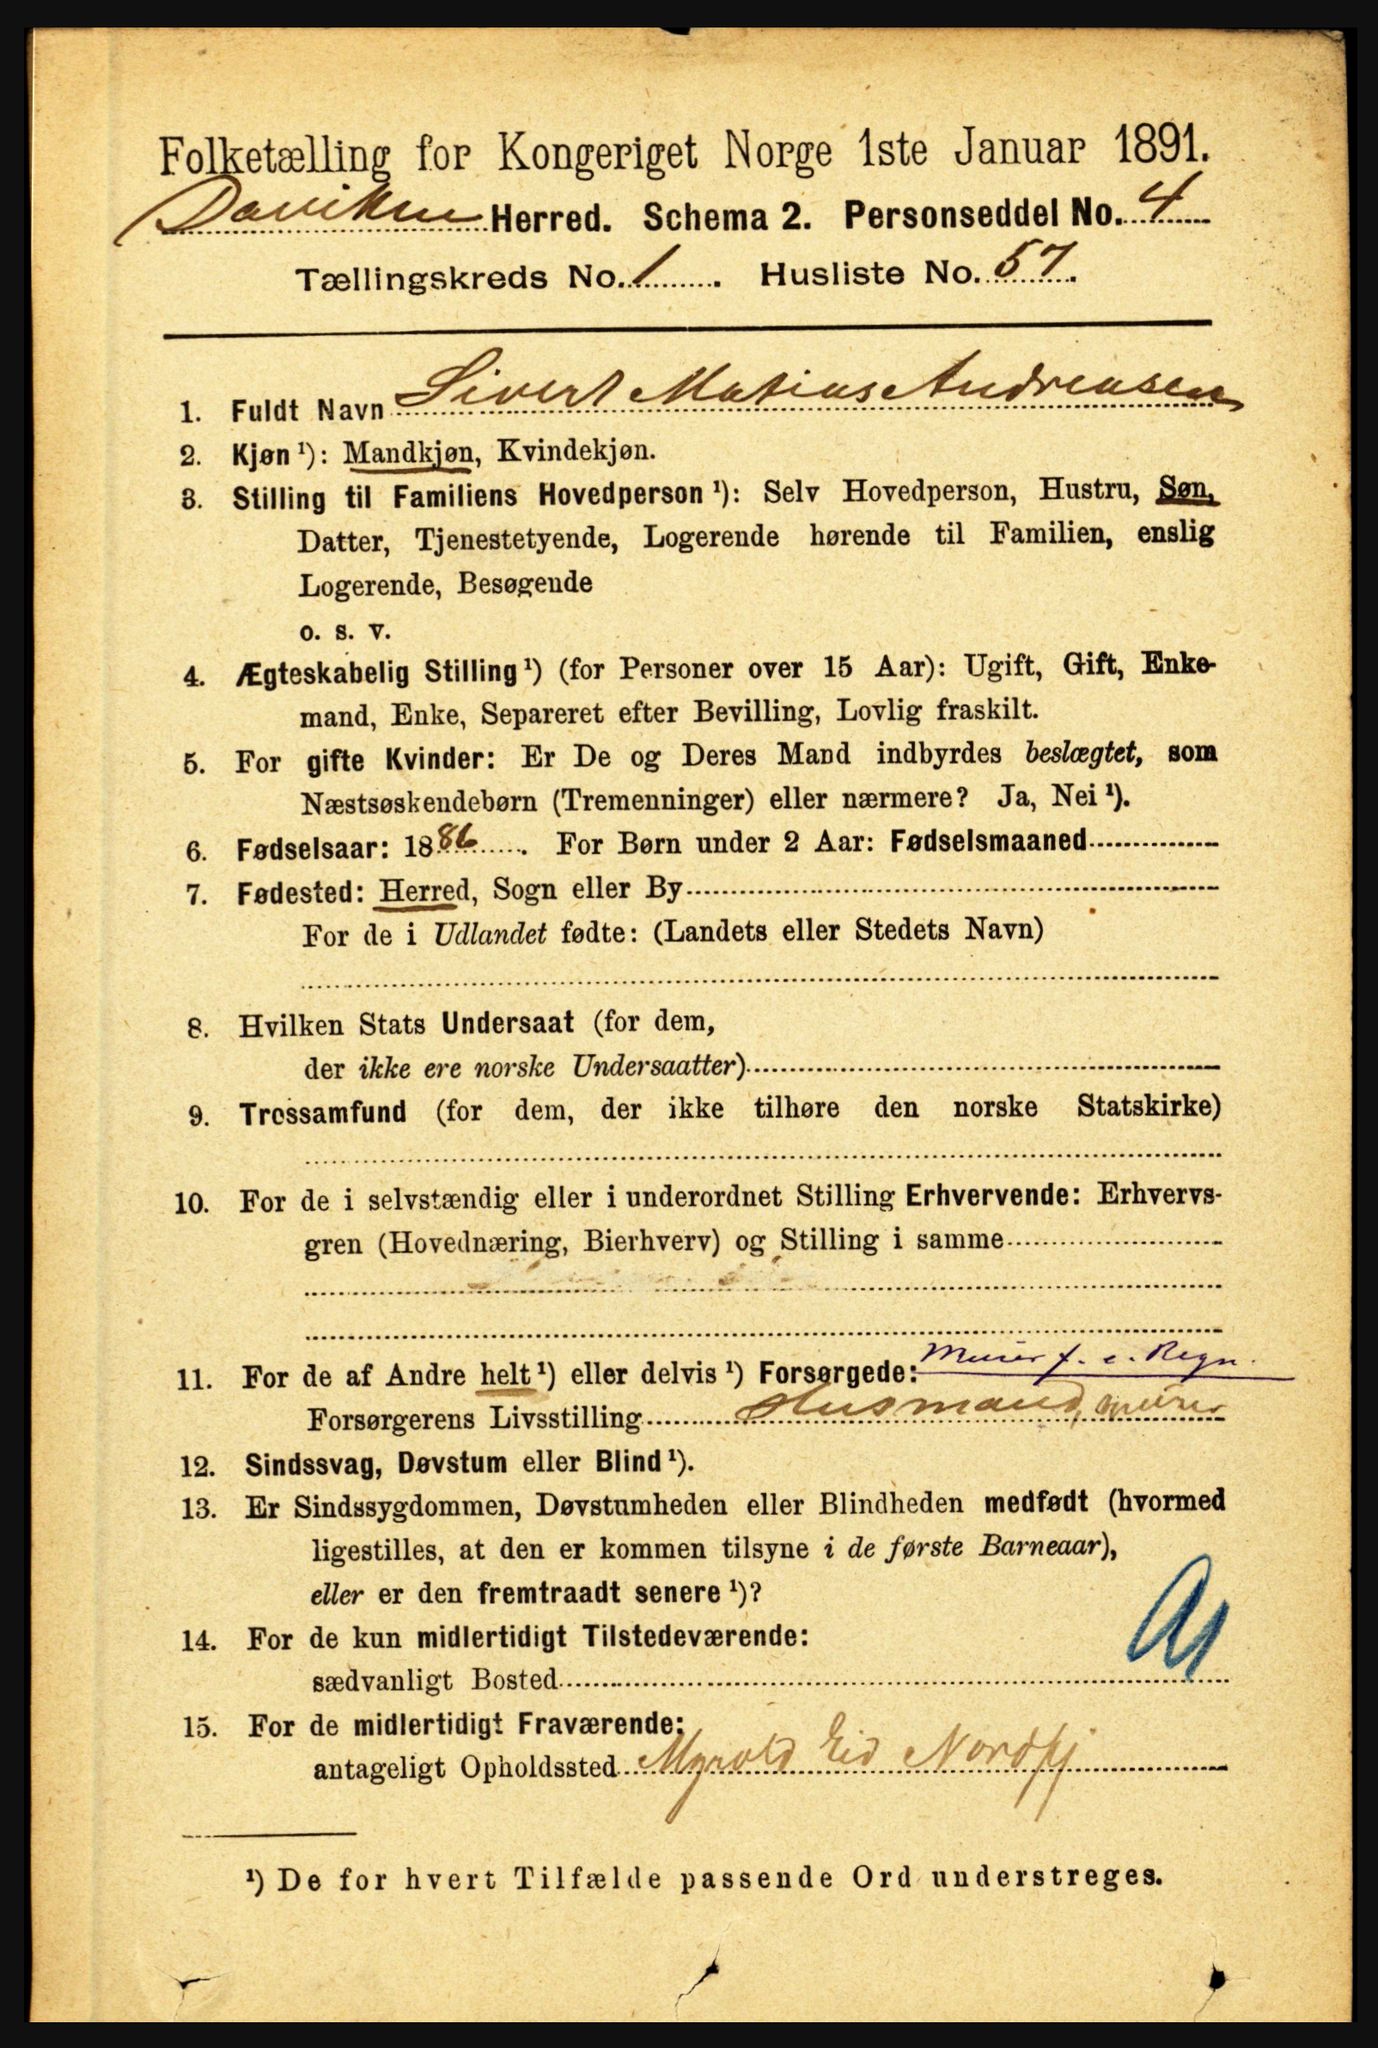 Folketælling for Kongeriget Norge 1ste Januar 1891.
Daviken Herred. Schema 2. Personseddel No. 4
Tællingskreds No. 1. Husliste No. 57.
1. Fuldt Navn Sivert Matias Andreasen
2. Kjøn ¹): Mandkjøn, Kvindekjøn.
3. Stilling til Familiens Hovedperson ¹): Selv Hovedperson, Hustru, Søn,
Datter, Tjenestetyende, Logerende hørende til Familien, enslig
Logerende, Besøgende
o. s. v.
4. Ægteskabelig Stilling ¹) (for Personer over 15 Aar): Ugift, Gift, Enke-
mand, Enke, Separeret efter Bevilling, Lovlig fraskilt.
5. For gifte Kvinder: Er De og Deres Mand indbyrdes beslægtet, som
Næstsøskendebørn (Tremenninger) eller nærmere? Ja, Nei ¹).
6. Fødselsaar: 1886. For Børn under 2 Aar: Fødselsmaaned
7. Fødested: Herred, Sogn eller By
For de i Udlandet fødte: (Landets eller Stedets Navn)
8. Hvilken Stats Undersaat (for dem,
der ikke ere norske Undersaatter)
9. Trossamfund (for dem, der ikke tilhøre den norske Statskirke)
10. For de i selvstændig eller i underordnet Stilling Erhvervende: Erhvervs-
gren (Hovednæring, Bierhverv) og Stilling i samme
11. For de af Andre helt ¹) eller delvis ¹) Forsørgede: Murer f. e. Regn.
Forsørgerens Livsstilling Husmand, murer
12. Sindssvag, Døvstum eller Blind ¹).
13. Er Sindssygdommen, Døvstumheden eller Blindheden medfødt (hvormed
ligestilles, at den er kommen tilsyne i de første Barneaar),
eller er den fremtraadt senere ¹)?
14. For de kun midlertidigt Tilstedeværende:
sædvanligt Bosted
15. For de midlertidigt Fraværende:
antageligt Opholdssted Myrold Eid Nordfj
¹) De for hvert Tilfælde passende Ord understreges.